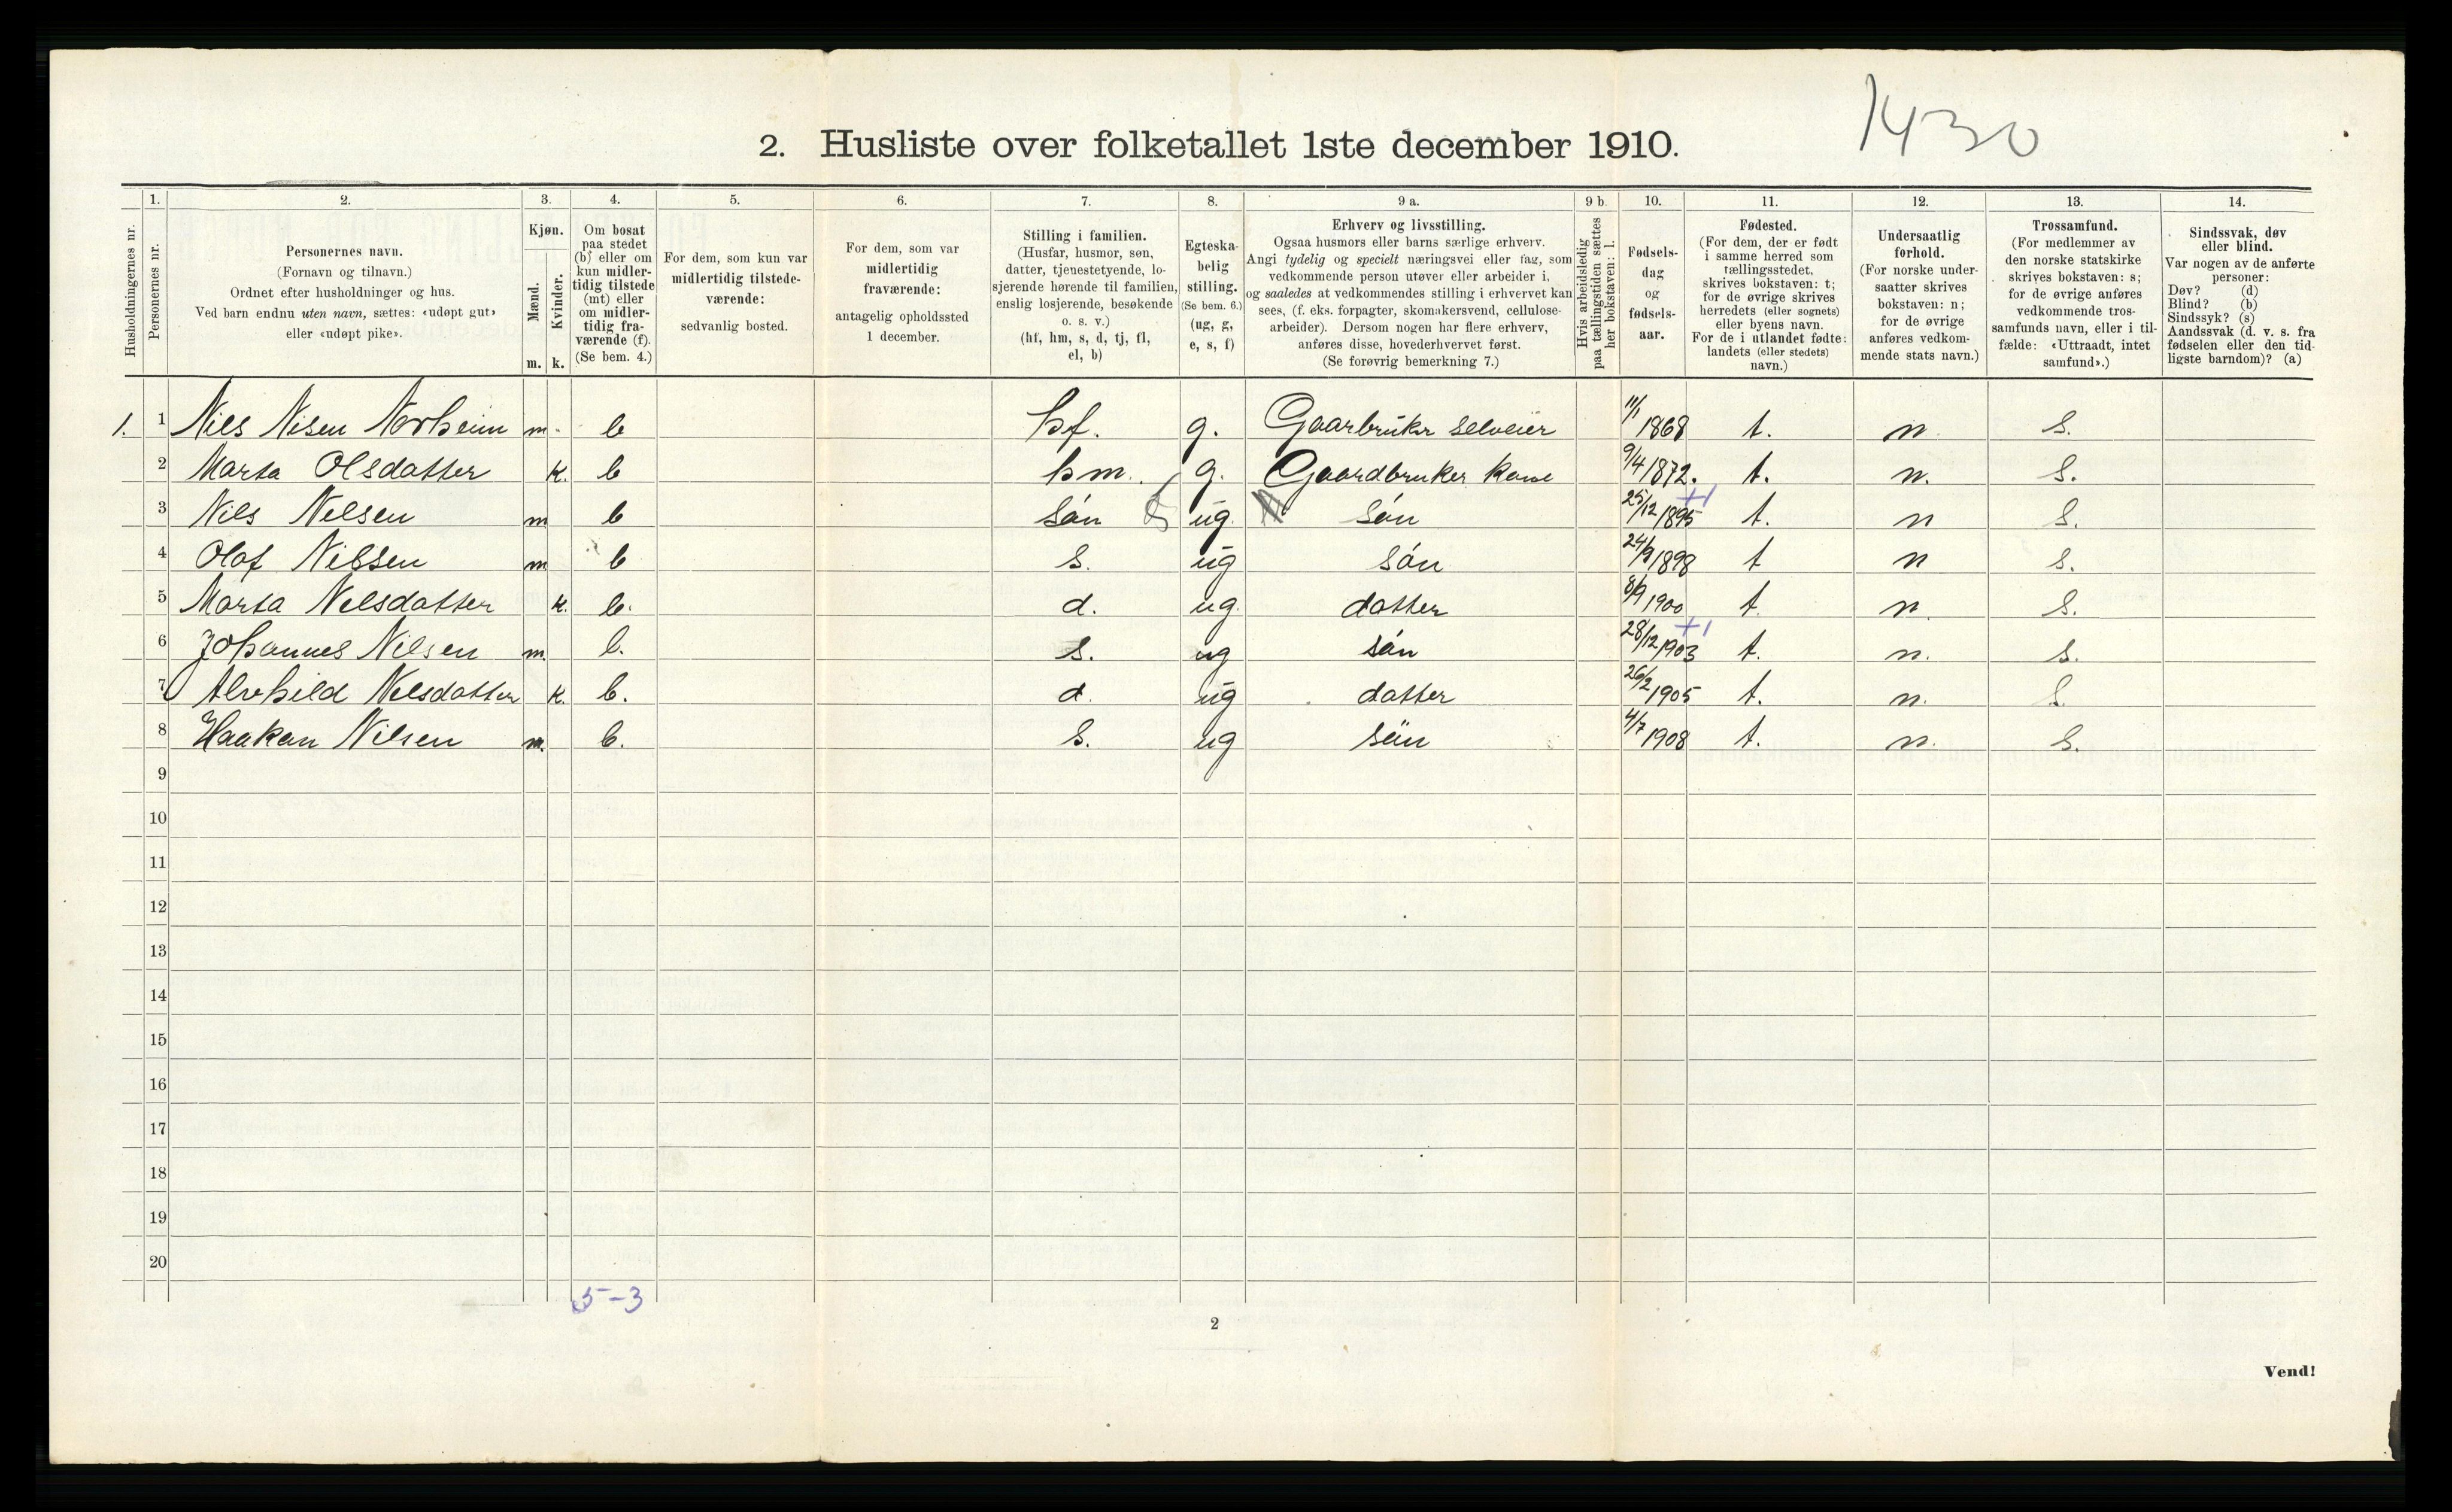 1430
2. Husliste over folketallet 1ste december 1910.
Husholdningernes nr.
1.
Personernes nr.
2.
Personernes navn.
(Fornavn og tilnavn.)
Ordnet efter husholdninger og hus.
Ved barn endnu uten navn, sættes: «udøpt gut»
eller «udøpt pike».
3.
Kjøn.
Mænd.
Kvinder.
m. k.
4.
Om bosat
paa stedet
(b) eller om
kun midler-
tidig tilstede
(mt) eller
om midler-
tidig fra-
værende (f).
(Se bem. 4.)
5.
For dem, som kun var
midlertidig tilstede-
værende:
sedvanlig bosted.
6.
For dem, som var
midlertidig
fraværende:
antagelig opholdssted
1 december.
7.
Stilling i familien.
(Husfar, husmor, søn,
datter, tjenestetyende, lo-
sjerende hørende til familien,
enslig losjerende, besøkende
o. s. v.)
(hf, hm, s, d, tj, fl,
el, b)
8.
Egteska-
belig
stilling.
(Se bem. 6.)
(ug, g,
e, s, f)
9 a.
Erhverv og livsstilling.
Ogsaa husmors eller barns særlige erhverv.
Angi tydelig og specielt næringsvei eller fag, som
vedkommende person utøver eller arbeider i,
og saaledes at vedkommendes stilling i erhvervet kan
sees, (f. eks. forpagter, skomakersvend, cellulose-
arbeider). Dersom nogen har flere erhverv,
anføres disse, hovederhvervet først.
(Se forøvrig bemerkning 7.)
9 b.
Hvis arbeidsledig
paa tællingstiden sættes
her bokstaven: l.
10.
Fødsels-
dag
og
fødsels-
aar.
11.
Fødested.
(For dem, der er født
i samme herred som
tællingsstedet,
skrives bokstaven: t;
for de øvrige skrives
herredets (eller sognets)
eller byens navn.
For de i utlandet fødte:
landets (eller stedets)
navn.)
12.
Undersaatlig
forhold.
(For norske under-
saatter skrives
bokstaven: n;
for de øvrige
anføres vedkom-
mende stats navn.)
13.
Trossamfund.
(For medlemmer av
den norske statskirke
skrives bokstaven: s;
for de øvrige anføres
vedkommende tros-
samfunds navn, eller i til-
fælde: «Uttraadt, intet
samfund».)
14.
Sindssvak, døv
eller blind.
Var nogen av de anførte
personer:
Døv? (d)
Blind? (b)
Sindssyk? (s)
Aandssvak (d. v. s. fra
fødselen eller den tid-
ligste barndom)? (a)
1. 1 Nils Nisen Norheim m. b hf. g. Gaarbruker selveier 11/1 1868 t. n. s.
2 Marta Olsdatter k. b hm. g. Gaardbruker kone 9/4 1872. t. n. s.
3 Nils Nelsen m b sön ug. sön 25/12 1895 +1 t. n s.
4 Olaf Nilssen m b s. ug sön 24/9 1898 t n s.
5 Marta Nelsdatter k. b. d. ug. datter 8/9 1900 t. n. s.
6 Johannes Nilsen m. b. s. ug sön 28/12 1903 +1 t. n. s.
7 Alvhild Nelsdatter k. b. d. ug datter 26/2 1905 t. n. s.
8 Haakan Nilsen m. b. s. ug sön 4/7 1908 t. n. s.
9
10
11
12
13
14
15
16
17
18
19
20
5-3
2
Vend!